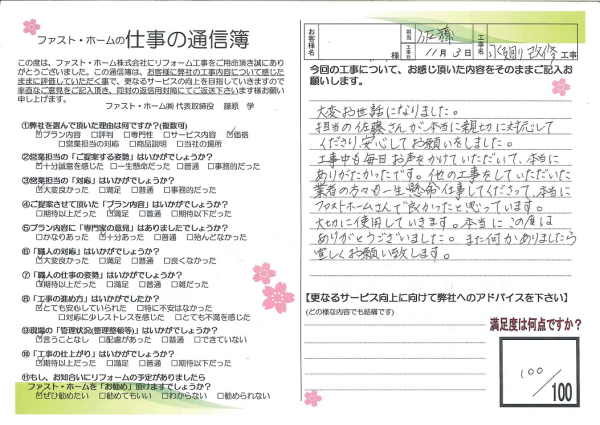 ファスト・ホームの仕事の通信簿
この度は、ファスト・ホーム株式会社にリフォーム工事をご用命頂き誠にあり
がとうございました。この通信簿は、お客様に弊社の工事内容について感じた
ままに評価していただく事で、更なるサービスの向上を目指していきますので
率直なご意見をご記入頂き、同封の返信用封筒にてご返送下さいます様お願い
申し上げます。
ファスト・ホーム㈱ 代表取締役　藤原　学
①弊社を選んで頂いた理由は何ですか?(複数可)
☑プラン内容　□評判　□専門性　□サービス内容　☑価格
□営業担当の対応　□商品説明　□当社の場所
②営業担当の「ご提案する姿勢」はいかがでしょうか?
☑十分誠意を感じた　□一生懸命だった　□普通　□事務的だった
③営業担当の「対応」はいかがでしょうか?
☑大変良かった　□満足　□普通　□事務的だった
④ご提案させて頂いた「プラン内容」はいかがでしょうか?
□期待以上だった　☑満足　□普通　□期待以下だった
⑤プラン内容に「専門家の意見」はありましたでしょうか?
□かなりあった　☑十分あった　□普通　□殆んどなかった
⑥「職人の対応」はいかがでしょうか?
☑大変良かった　□満足　□普通　□良くなかった
⑦「職人の仕事の姿勢」はいかがでしょうか?
☑期待以上だった　□満足　□普通　□雑だった
⑧「工事の進め方」はいかがでしたか?
☑とても安心していられた　□特に不安はなかった
□対応に少しストレスを感じた　□とても不満を感じた
⑨現場の「管理状況(整理整頓等)」はいかがでしょうか?
☑言うことなし　□配慮があった　□普通　□できていない
⑩「工事の仕上がり」はいかがでしょうか?
☑期待以上だった　□満足　□普通　□期待以下だった
⑪もし、お知合いにリフォームの予定がありましたら
ファスト・ホームを「お勧め」頂けますでしょうか?
☑ぜひ勧めたい　□勧めてもいい　□わからない　□勧められない
お客様名　様　担当　佐藤
工事日　11月3日　工事名　水廻り改修工事
今回の工事について、お感じ頂いた内容をそのままご記入お
願いします。
大変お世話になりました。
担当の佐藤さんが本当に親切に対応して
くださり、安心してお願いをしました。
工事中も毎日お声をかけていただいて、本当に
ありがたかったです。他の工事をしていただいた
業者の方々も一生懸命仕事してくださって、本当に
ファストホームさんで良かったと思っています。
大切に使用していきます。本当に この度は
ありがとうございました。また何かありましたら
宜しくお願い致します。
【更なるサービス向上に向けて弊社へのアドバイスを下さい】
(どの様な内容でも結構です)
満足度は何点ですか?
100/100